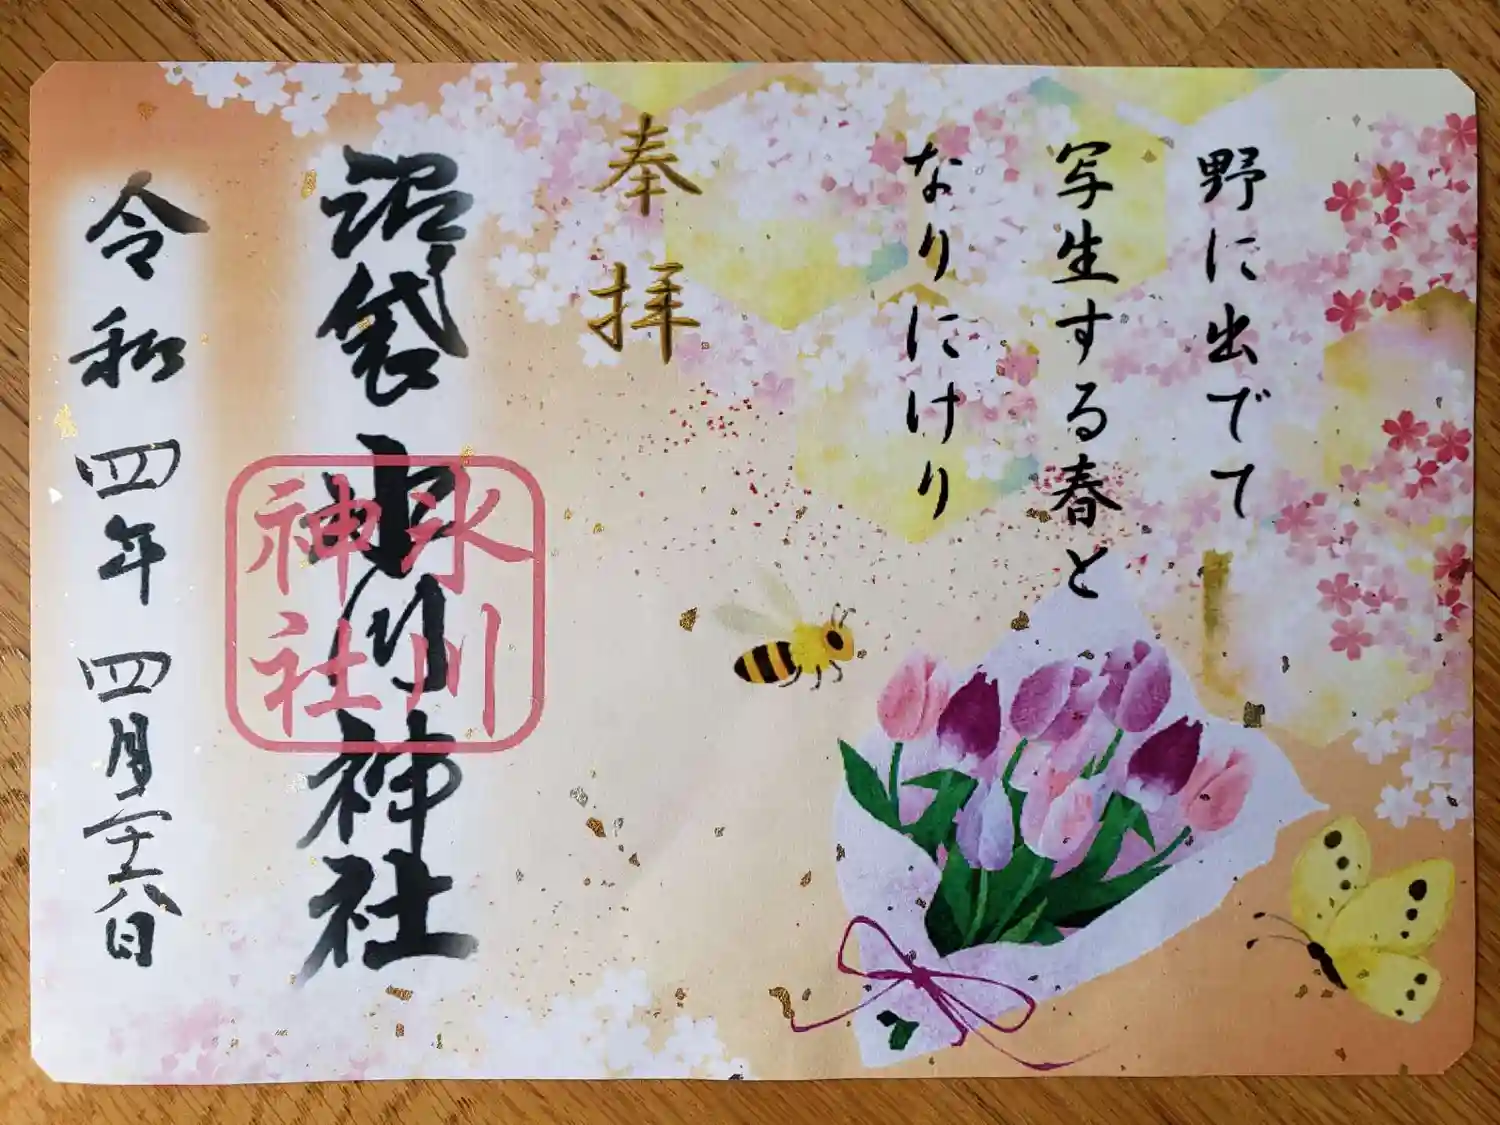 野に出でて
写生する春と
なりにけり
奉拝
沼袋氷川神社
氷川
神社
令和四年四月二十六日